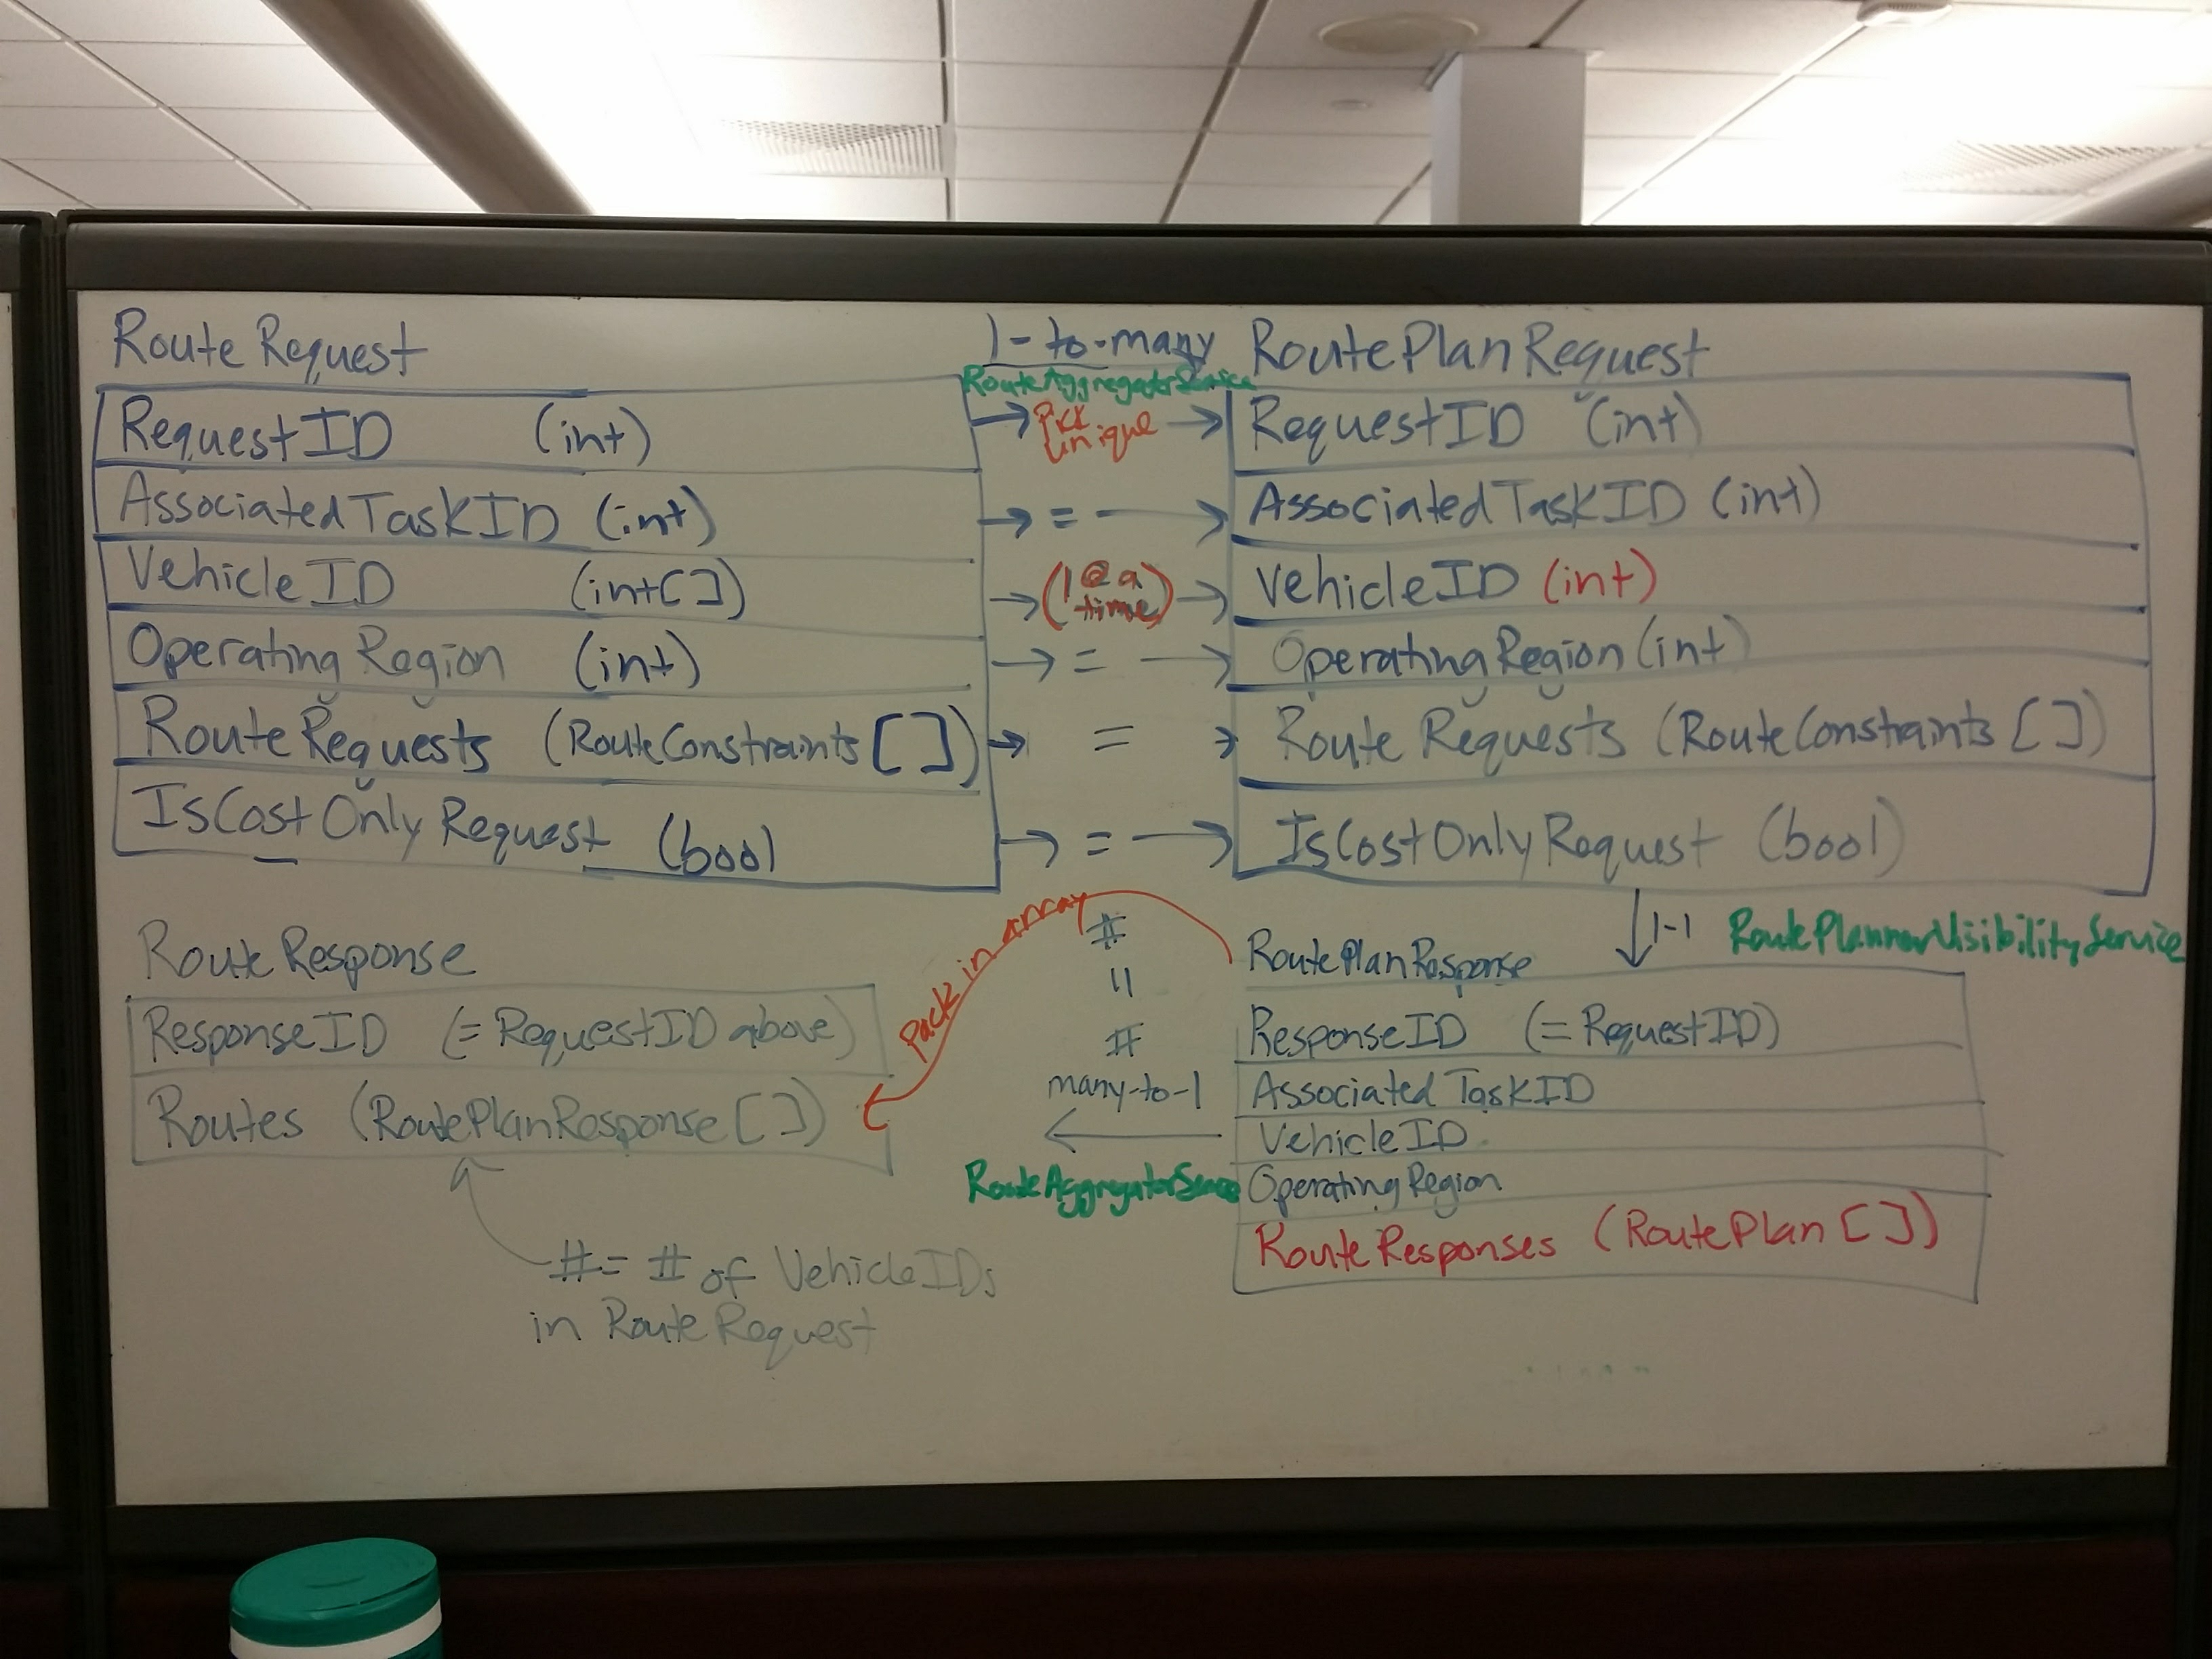 RouteRequest
RequestID (int)
AssociatedTaskID (int)
VehicleID (int[])
OperatingRegion (int)
RouteRequests (RouteConstraints[])
IsCostOnlyRequest (bool)
1-to-many
RouteAggregatorService
→ Pick Unique →
→ = →
→ (1 @ a time) →
→ = →
→ = →
→ = →
RoutePlanRequest
RequestID (int)
AssociatedTaskID (int)
VehicleID (int)
OperatingRegion (int)
RouteRequests (RouteConstraints[])
IsCostOnlyRequest (bool)
1-1
RoutePlannerVisibilityService
RoutePlanResponse
ResponseID (=RequestID)
AssociatedTaskID
VehicleID
OperatingRegion
RouteResponses (RoutePlan[])
Pack in array
#
=
#
many-to-1
RouteAggregatorService
RouteResponse
ResponseID (=RequestID above)
Routes (RoutePlanResponse[])
#= # of VehicleIDs
in RouteRequest